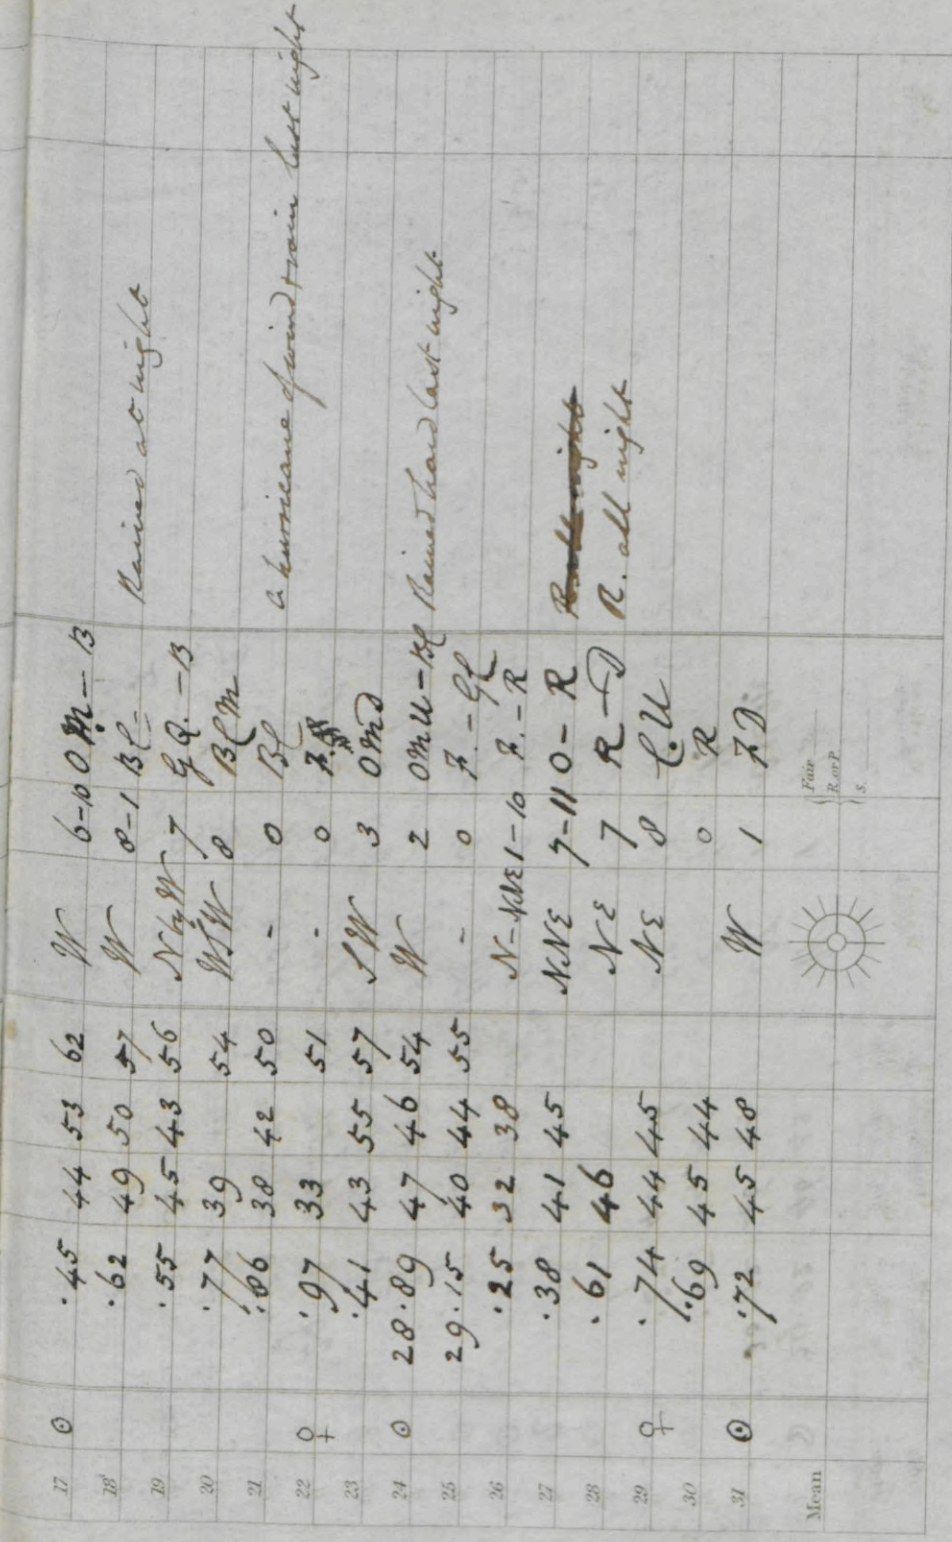 17 ☉ .45 44 53 62 W 6-10 O M. - B
18 .62 49 50 57 W 8-1 B C - Rained at night
19 .55 45 43 56 N by W 7 G Q. - B
20 .77 39 54 WSW 8 B C M
21 .86 38 42 50 - 0 B C a hurricane of wind & rain last night
22 ♀ .97 33 51 - 0 F.
23 .41 43 55 57 SW 3 O M D
24 ☉ 28.89 47 46 54 W 2 O M U - B C Rained hard last night
25 29.15 40 44 55 - 0 F. - G C
26 .25 32 38 N-NNE 1-10 F. - R
27 .38 41 45 NNE 7-11 O - R R all night
28 .61 46 NE 7 R - D R. all night
29 ♀ .74 44 45 NE 8 C. U
30 .69 45 44 0 R
31 ☉ .72 45 48 W 1 F D
Mean
Fair
R. or P.
S.